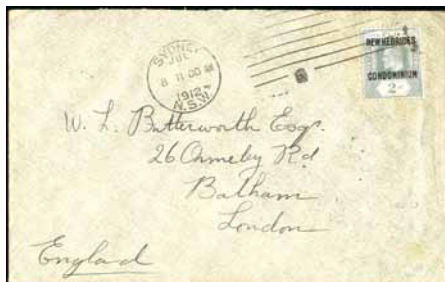 SYDNEY
JUL
8 11 00 AM
1912
N.S.W.
NEW HEBRIDES
CONDOMINIUM
2
W. L. Butterworth Esq.
26 Ormeley Rd
Balham
London
England